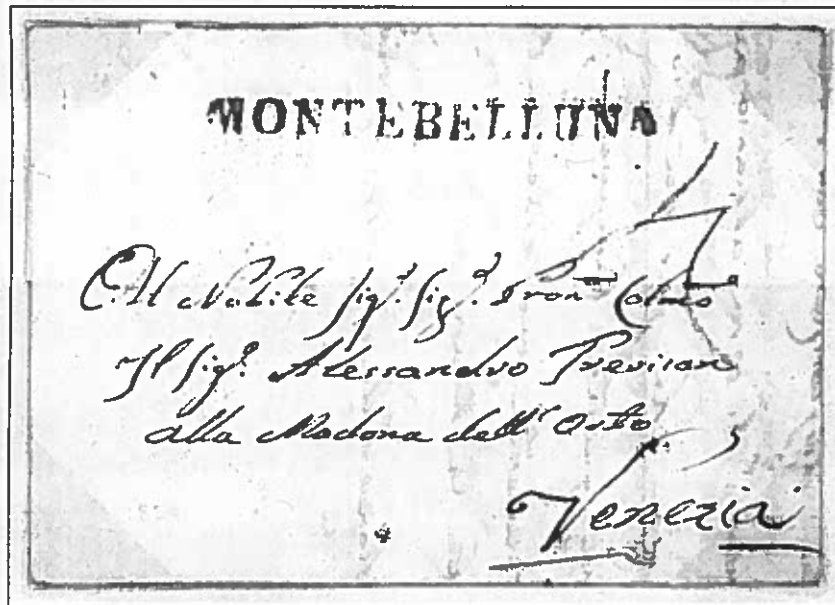 MONTEBELLUNA
Il Nobile Sig.r Sig.r Pron
Il Sig.r Alessandro Trevisan
alla Madona dell' Orto
Venezia